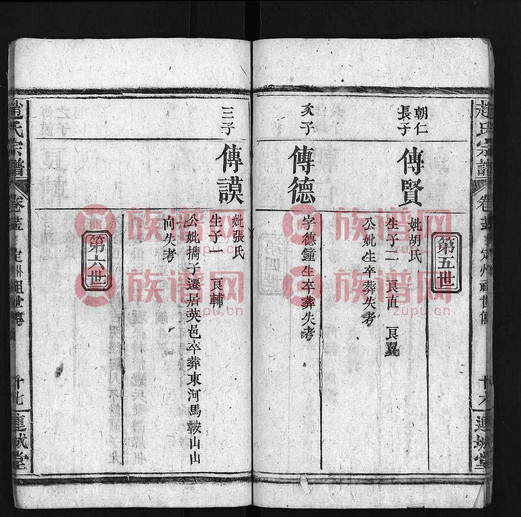 趙氏宗譜
卷
定州祖世傳
十六
連城堂
第五世
朝仁
長子
傳賢
妣胡氏
生子二 艮直 艮翼
公妣生卒葬失考
次子
傳德
字德鐘生卒葬失考
三子
傳謨
妣張氏
生子一 艮輔
公妣擕子遷居英邑卒葬東河馬鞍山山
向失考
第六世
趙氏宗譜
卷
定州祖世傳
十七
連城堂
族譜网
zupu.cn
族譜网
zupu.cn
族譜网
zupu.cn
族譜网
zupu.cn